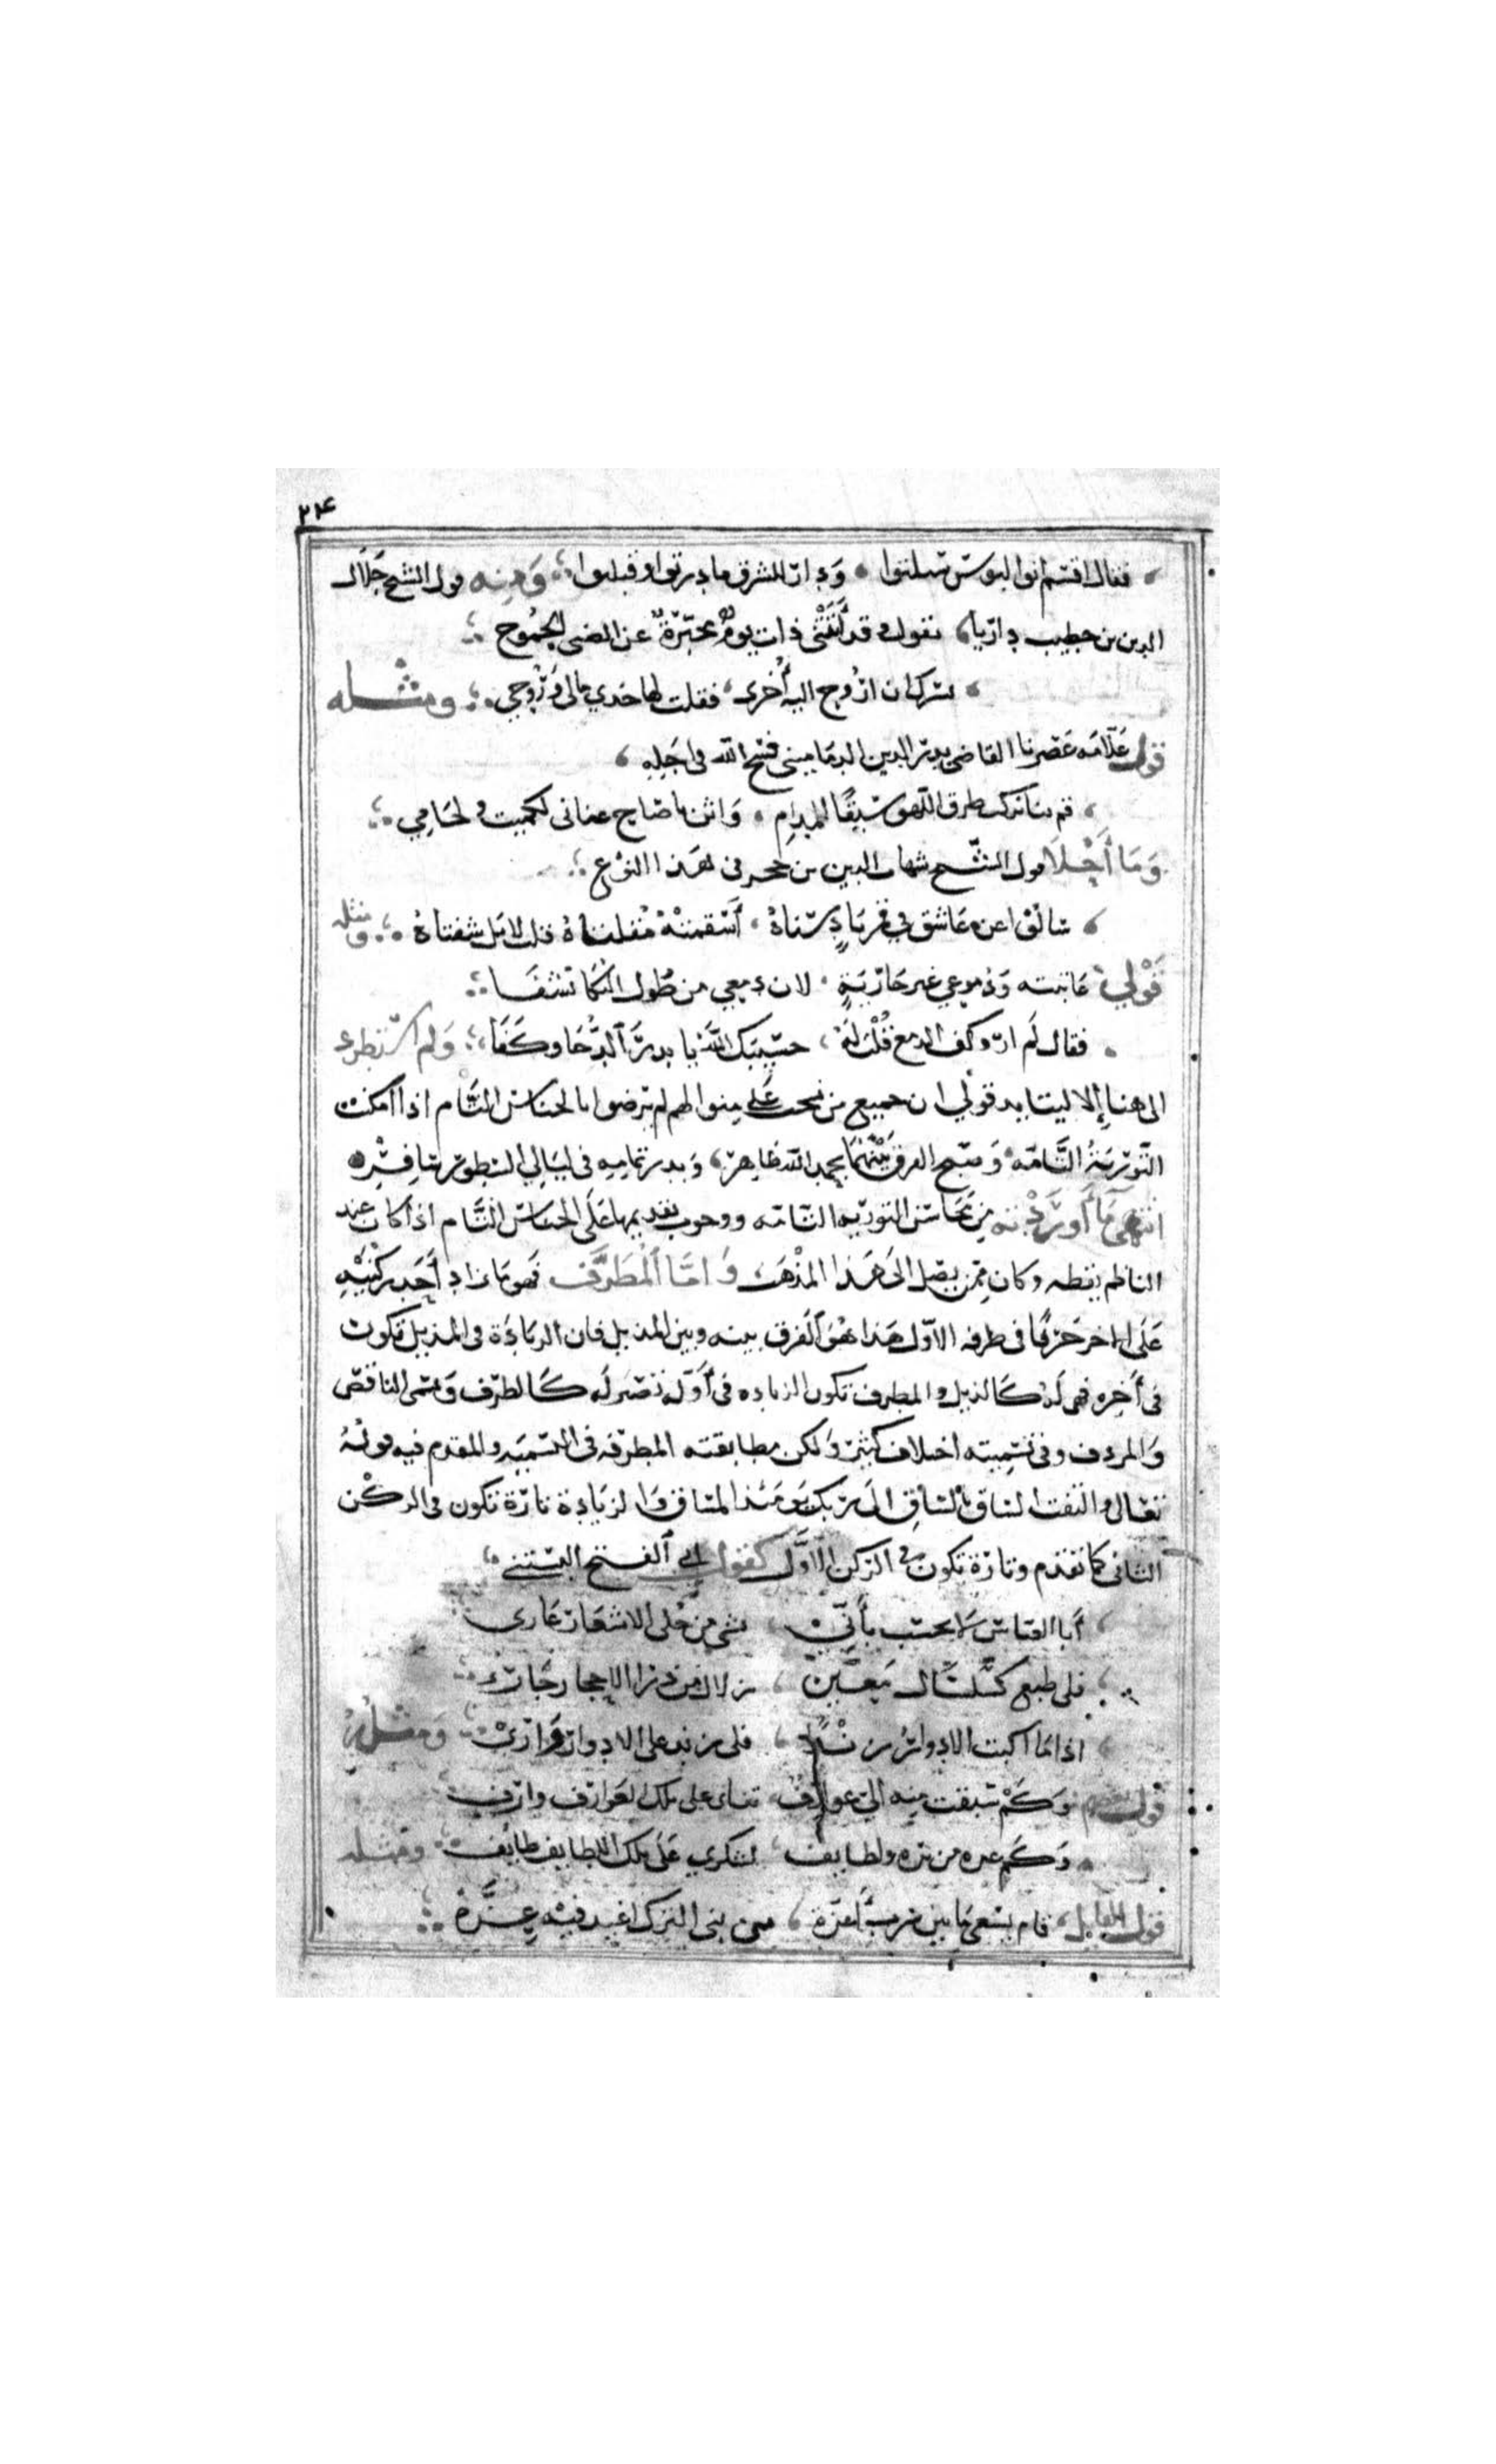 ٢٣٤
فقال اقتسموا البوس تسلتوا وداز المشرق ما درتوا وقبلوا ومنه قول الشيخ جلال
الدين بن خطيب داريا تقول وقد أتتني ذات يوم مخبرة عن الضبي الجموح
تسركان اروح اليه أخرى فقلت لها خدي مالي وروحي ومثله
قول علامة عصرنا القاضي بدر الدين الدماميني فسح الله في اجله
قم بنا نركب طرف اللهو سبقا للمدام واثن يا صاح عناني لكميت ولجامي
وما أحلا قول الشيخ شهاب الدين بن حجر في هذا النوع
سالوا عن عاشق في قمر باد سناه أسقمته مقلتاه قلت لا بل شفتاه ومثله
قولي عاتبته ودموعي غير جارية لان دمعي من طول البكا نشفا
فقال لم ار وكف الدمع قلت له حسيبك الله يا بدر الدجا وكفا ولم استطرد
الى هنا إلا ليتايد قولي ان جميع من نحت على منوالهم لم يرضوا بالجناس التام اذا امكنت
التورية التامة وصبح الفرق بينهما بحمد الله ظاهر وبدر تمامه في ليالي السطور سافر
انتهى ما أوردته من محاسن التورية التامة ووجوب تقديمها على الجناس التام اذا كان عند
الناظم يقظه وكان ممن يصل الى هذا المذهب واما المطرف فهو ما زاد أحد ركنيه
على الاخر حرفا في طرفه الاول هذا هو الفرق بينه وبين المذيل فان الزيادة في المذيل تكون
في أخره فهي له كالذيل والمطرف تكون الزياده في أوله لتصير له كالطرف ويسمى الناقص
والمردف وفي تسميته اختلاف كثير ولكن مطابقته المطرفه في التسميه والمقدم فيه قوله
تعالى والتفت الساق بالساق الى ربك يومئذ المساق والزيادة تارة تكون في الركن
الثاني كما تقدم وتارة تكون في الركن الاول كقول أبي الفتح البستي
أبا العباس لا تحسب بأني بشي من حلى الاشعار عاري
فلي طبع كسلسال معين زلال من ذرا الاحجار جاري
اذا ما اكبت الادوار زندا فلي زند على الادوار واري ومثله
قول بعضهم وكم سبقت منه الي عوارف ثنائي على تلك العوارف وارف
وكم غرر من بره ولطايف لشكري على تلك اللطايف طايف ومثله
قول القايل قام يسعى ما بين شرب أعزة من بني الترك اغيد فيه عزة